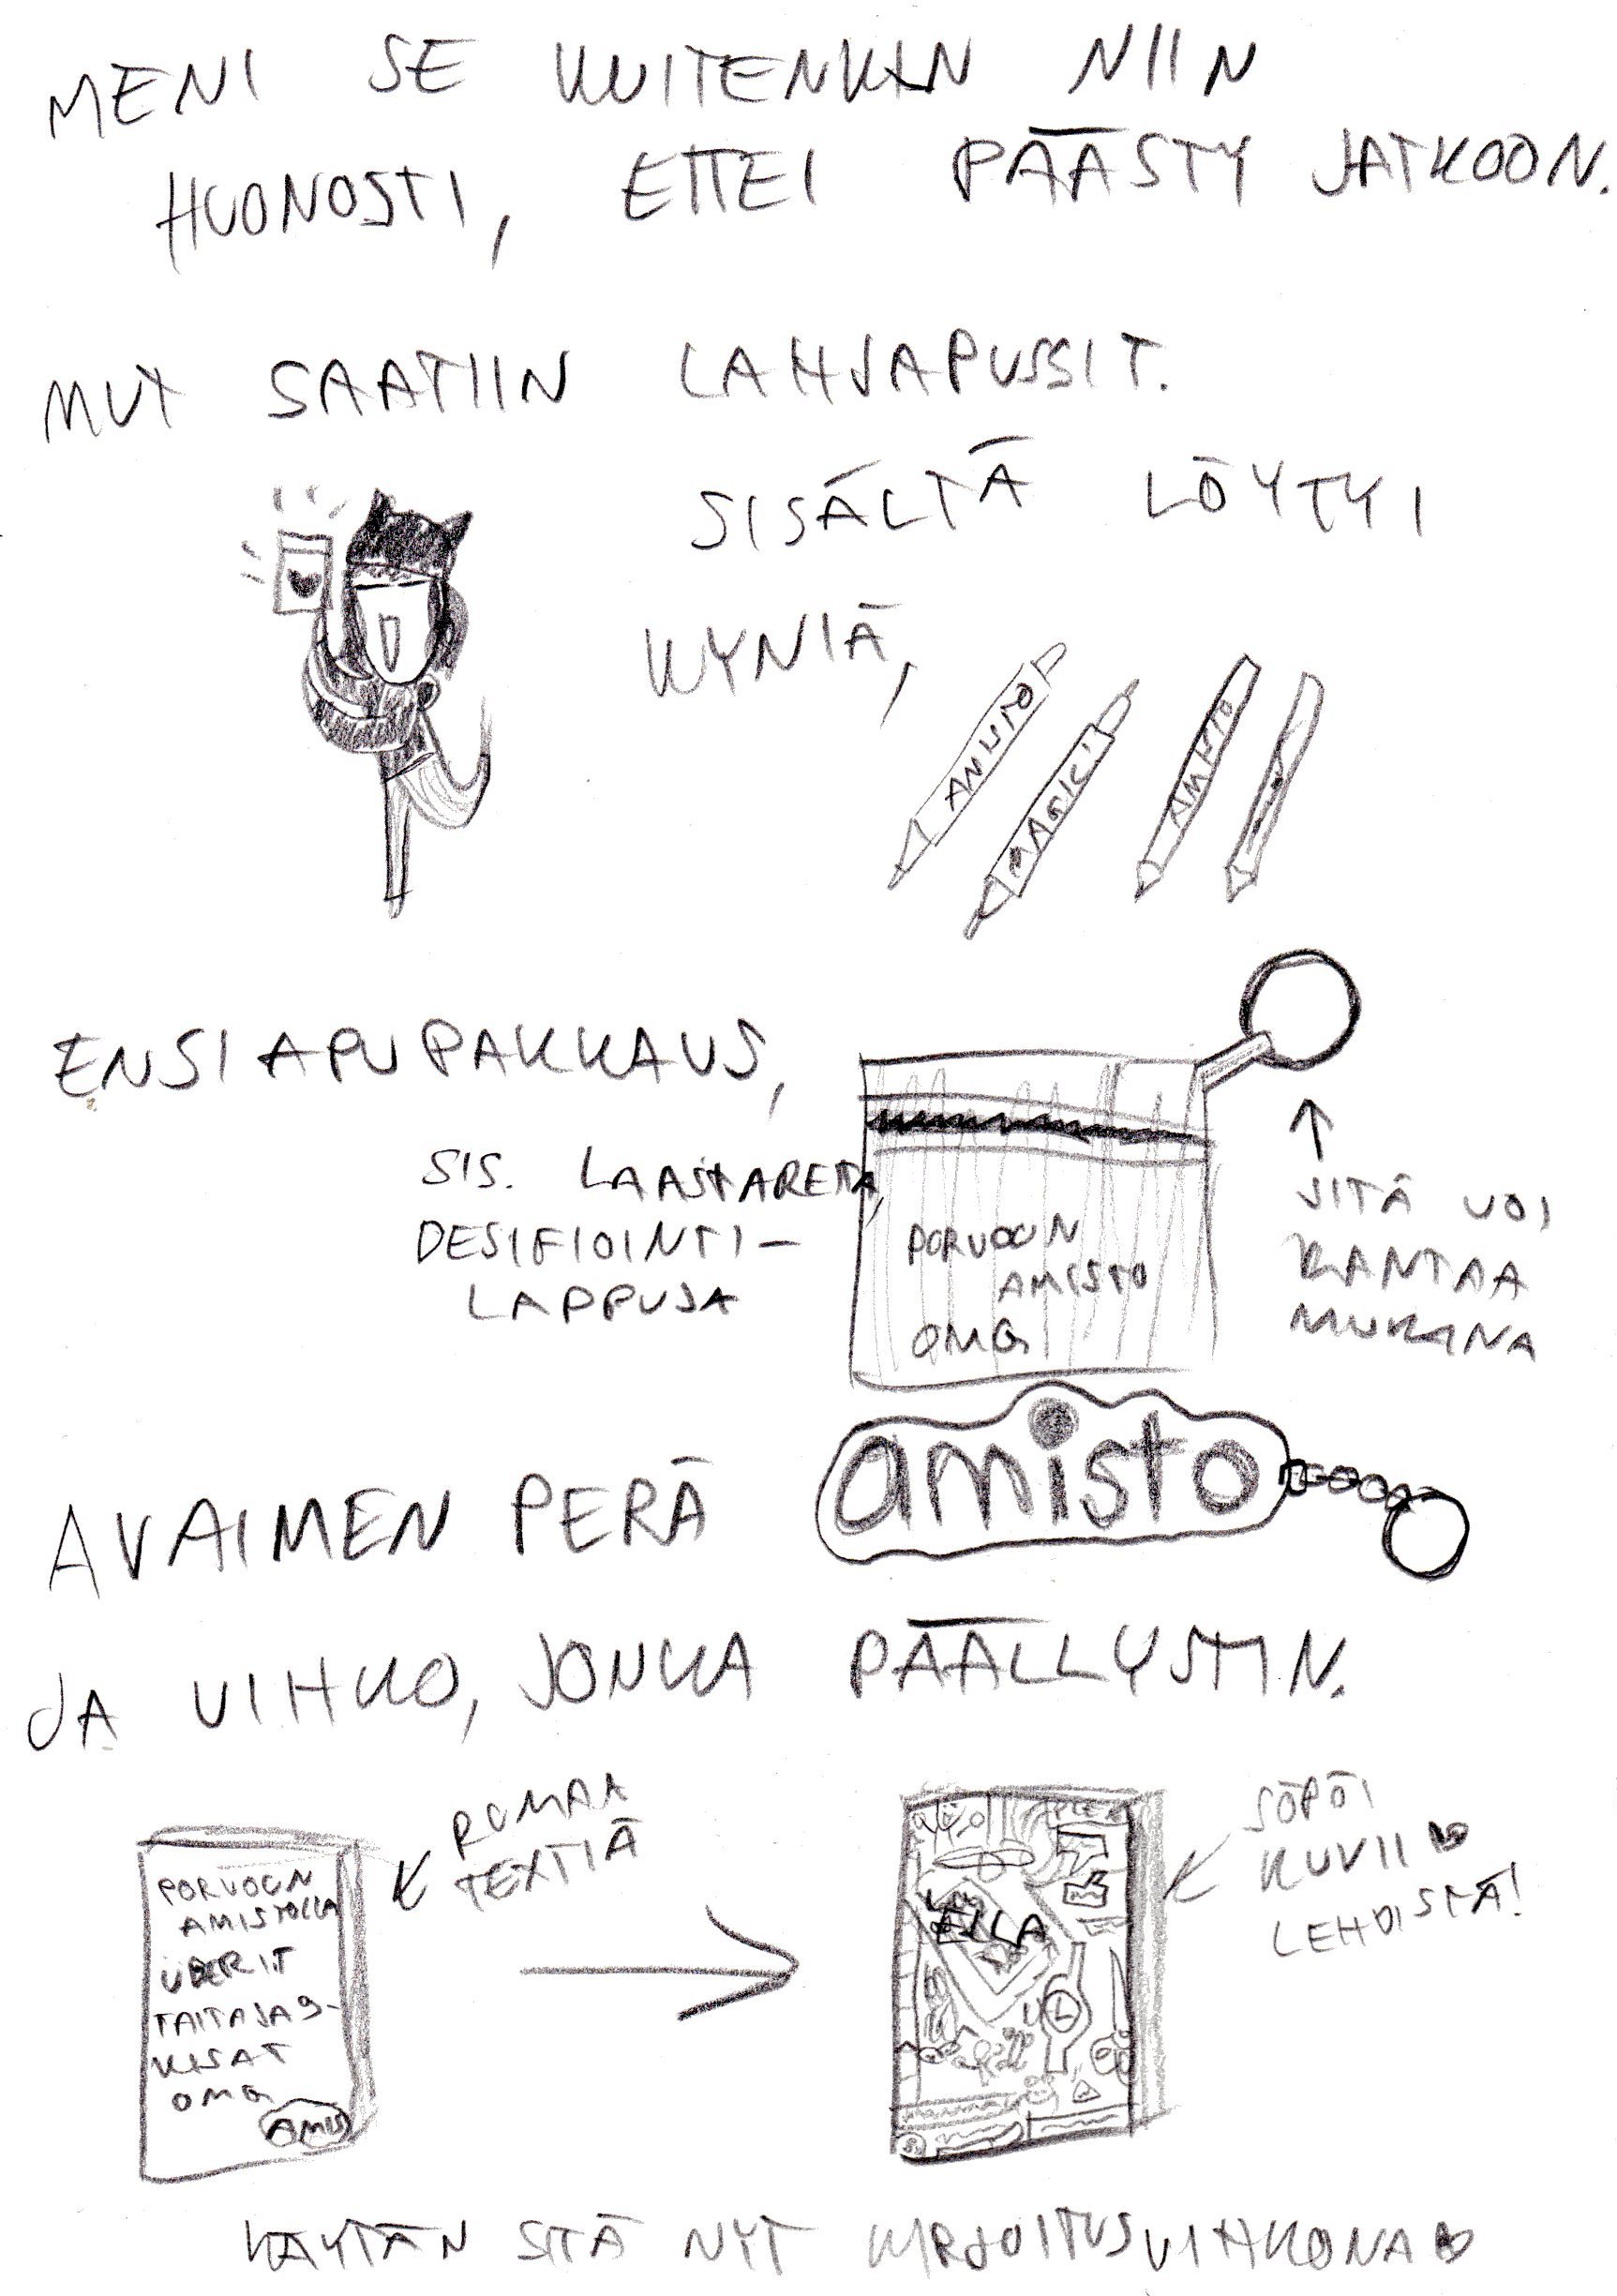 MENI SE KUITENKIN NIIN
HUONOSTI, ETTEI PÄÄSTY JATKOON.
MUT SAATIIN LAHJAPUSSIT.
SISÄLTÄ LÖYTYI
KYNIÄ,
AMISTO
AMISTO
ENSIAPUPAKKAUS,
SIS. LAASTAREITA,
DESIFIOINTI-
LAPPUJA
PORVOON
AMISTO
OMG
SITÄ VOI
KANTAA
MUKANA
AVAIMEN PERÄ
amisto
JA VIHKO, JONKA PÄÄLLYSTIN.
RUMAA
TEXTIÄ
PORVOON
AMISTOLLA
ÜBERIT
TAITAJA9-
KISAT
OMG
AMIS
ELLA
SÖPÖI
KUVII
LEHDISTÄ!
KÄYTÄN SITÄ NYT KIRJOITUSVIHKONA